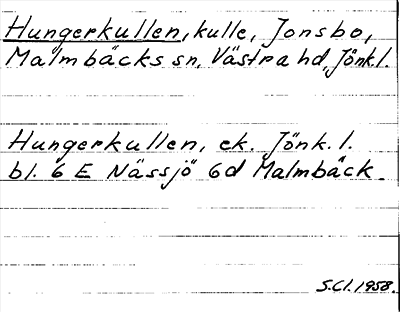 Hungerkullen, kulle, Jonsbo,
Malmbäcks sn, Västra hd, Jönk.l.
Hungerkullen, ek. Jönk. l.
bl. 6 E Nässjö 6d Malmbäck.
S.Cl. 1958.